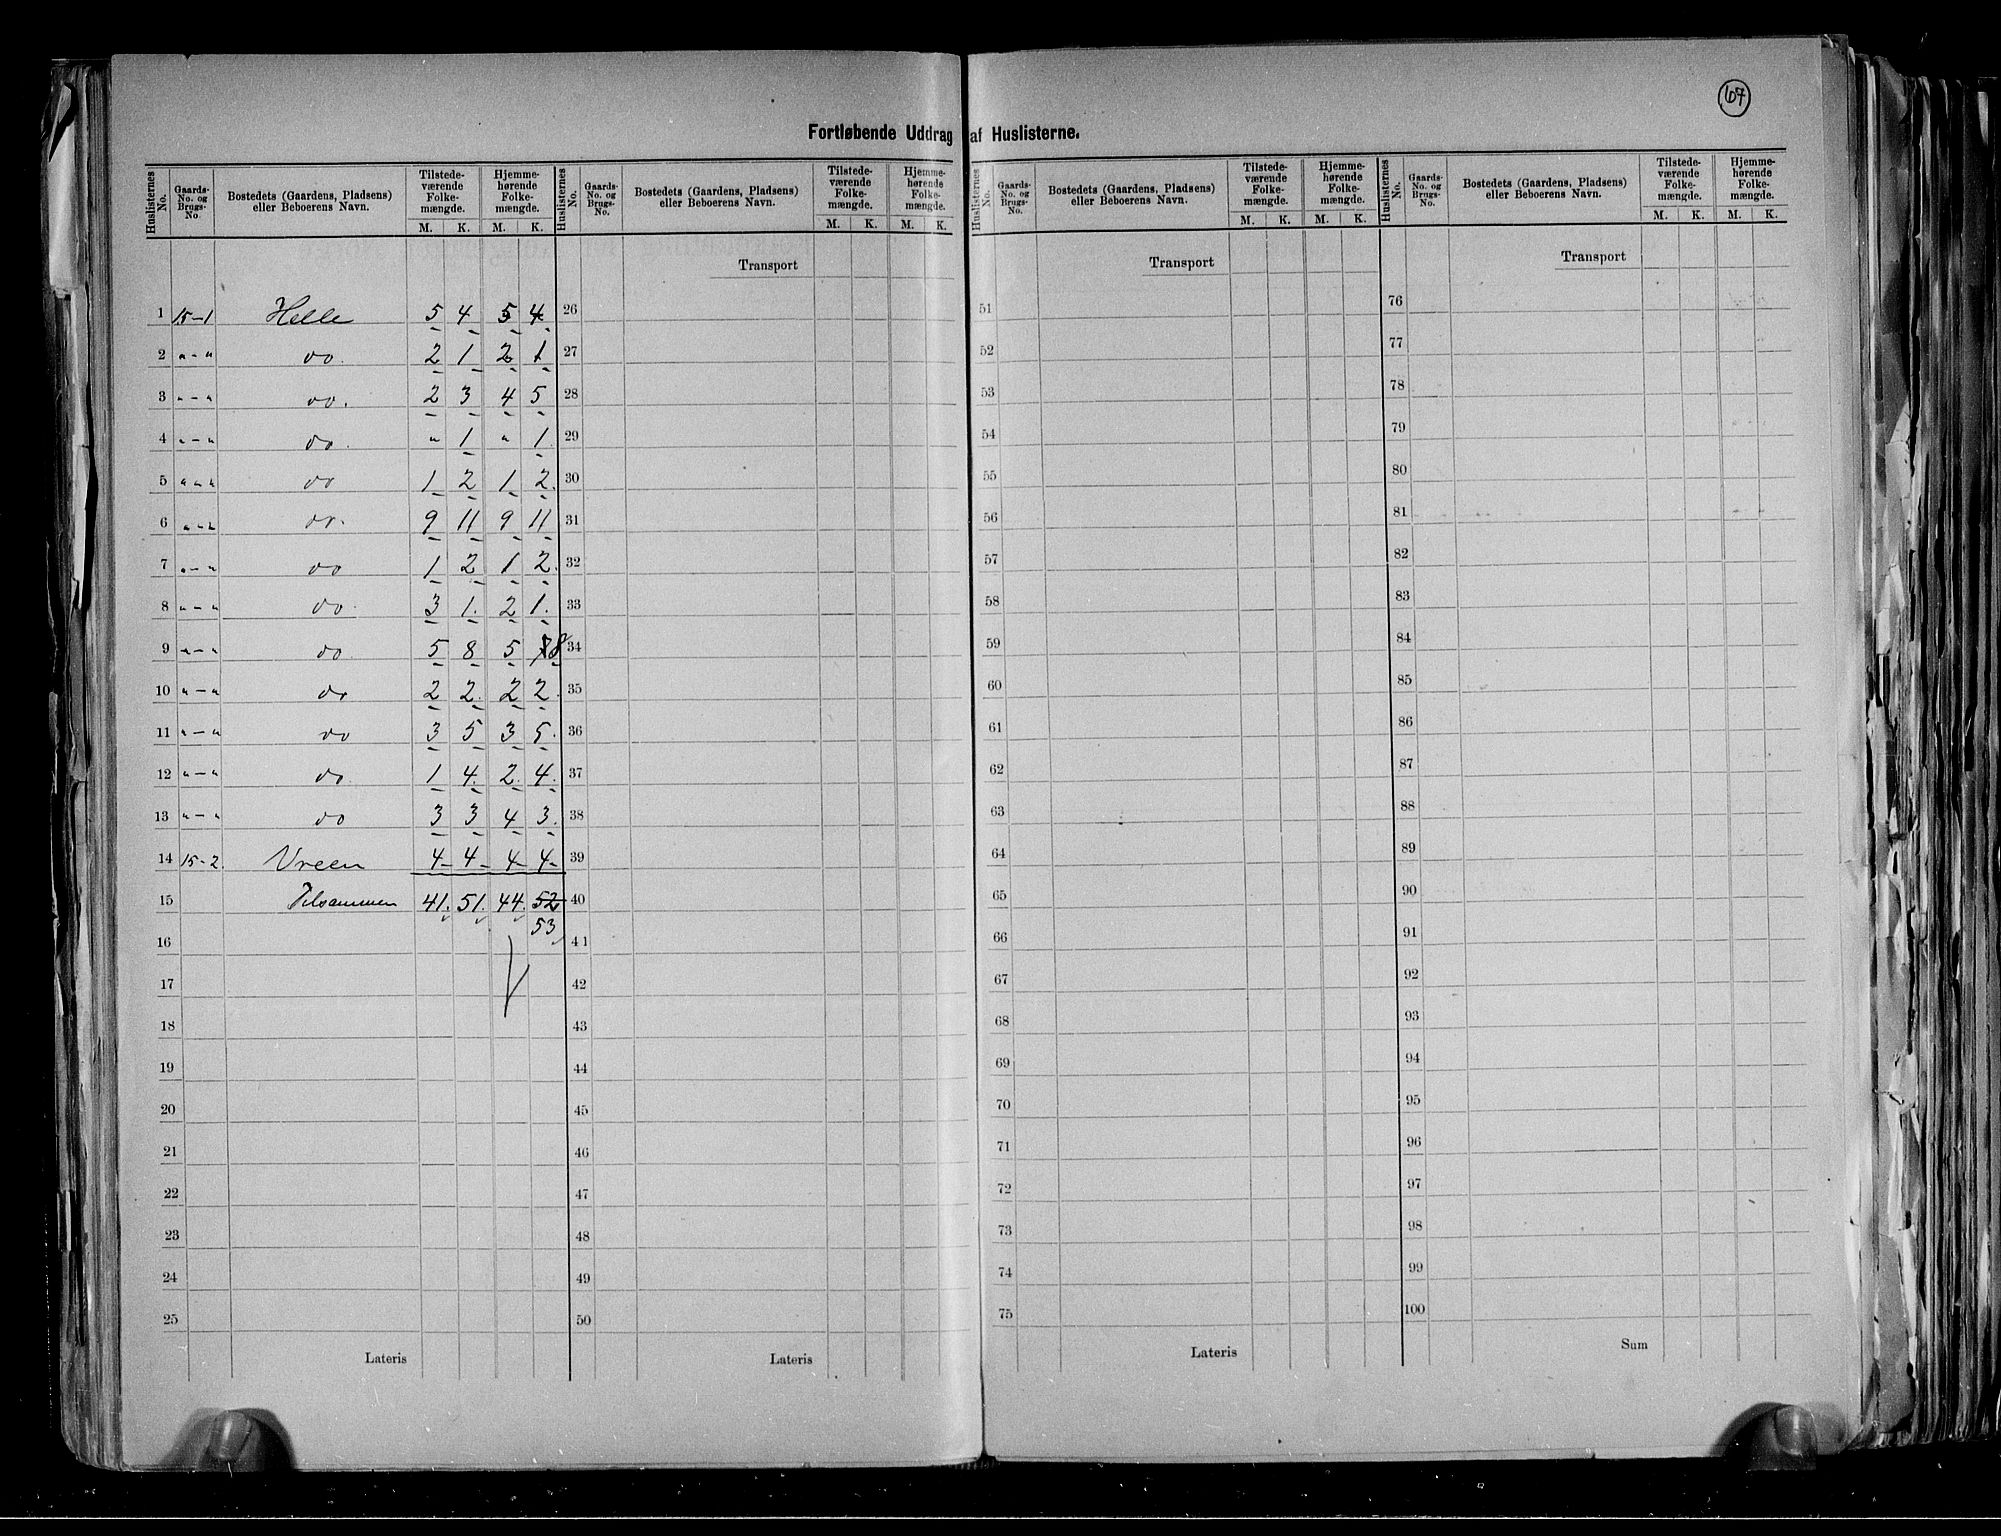 67
Fortløbende Uddrag af Huslisterne.
Huslisternes No. Gaards-No. og Brugs-No. Bostedets (Gaardens, Pladsens) eller Beboerens Navn. Tilstede-værende Folke-mængde. M. K. Hjemme-hørende Folke-mængde. M. K.
Huslisternes No. Gaards-No. og Brugs-No. Bostedets (Gaardens, Pladsens) eller Beboerens Navn. Tilstede-værende Folke-mængde. M. K. Hjemme-hørende Folke-mængde. M. K.
Huslisternes No. Gaards-No. og Brugs-No. Bostedets (Gaardens, Pladsens) eller Beboerens Navn. Tilstede-værende Folke-mængde. M. K. Hjemme-hørende Folke-mængde. M. K.
Huslisternes No. Gaards-No. og Brugs-No. Bostedets (Gaardens, Pladsens) eller Beboerens Navn. Tilstede-værende Folke-mængde. M. K. Hjemme-hørende Folke-mængde. M. K.
1 15-1 Helle 5 4 5 4
2 "-" do. 2 1 2 1
3 "-" do. 2 3 4 5
4 "-" do. " 1 " 1
5 "-" do 1 2 1 2
6 "-" do. 9 11 9 11
7 "-" do 1 2 1 2
8 "-" do. 3 1 2 1
9 "-" do 5 8 5 7 8
10 "-" do 2 2 2 2
11 "-" do 3 5 3 5
12 "-" do. 1 4 2 4
13 "-" do 3 3 4 3
14 15-2 Vreen 4 4 4 4
15 Tilsammen 41 51 44 52
53
16
17
18
19
20
21
22
23
24
25
Lateris
Transport
26
27
28
29
30
31
32
33
34
35
36
37
38
39
40
41
42
43
44
45
46
47
48
49
50
Lateris
Transport
51
52
53
54
55
56
57
58
59
60
61
62
63
64
65
66
67
68
69
70
71
72
73
74
75
Lateris
Transport
76
77
78
79
80
81
82
83
84
85
86
87
88
89
90
91
92
93
94
95
96
97
98
99
100
Sum